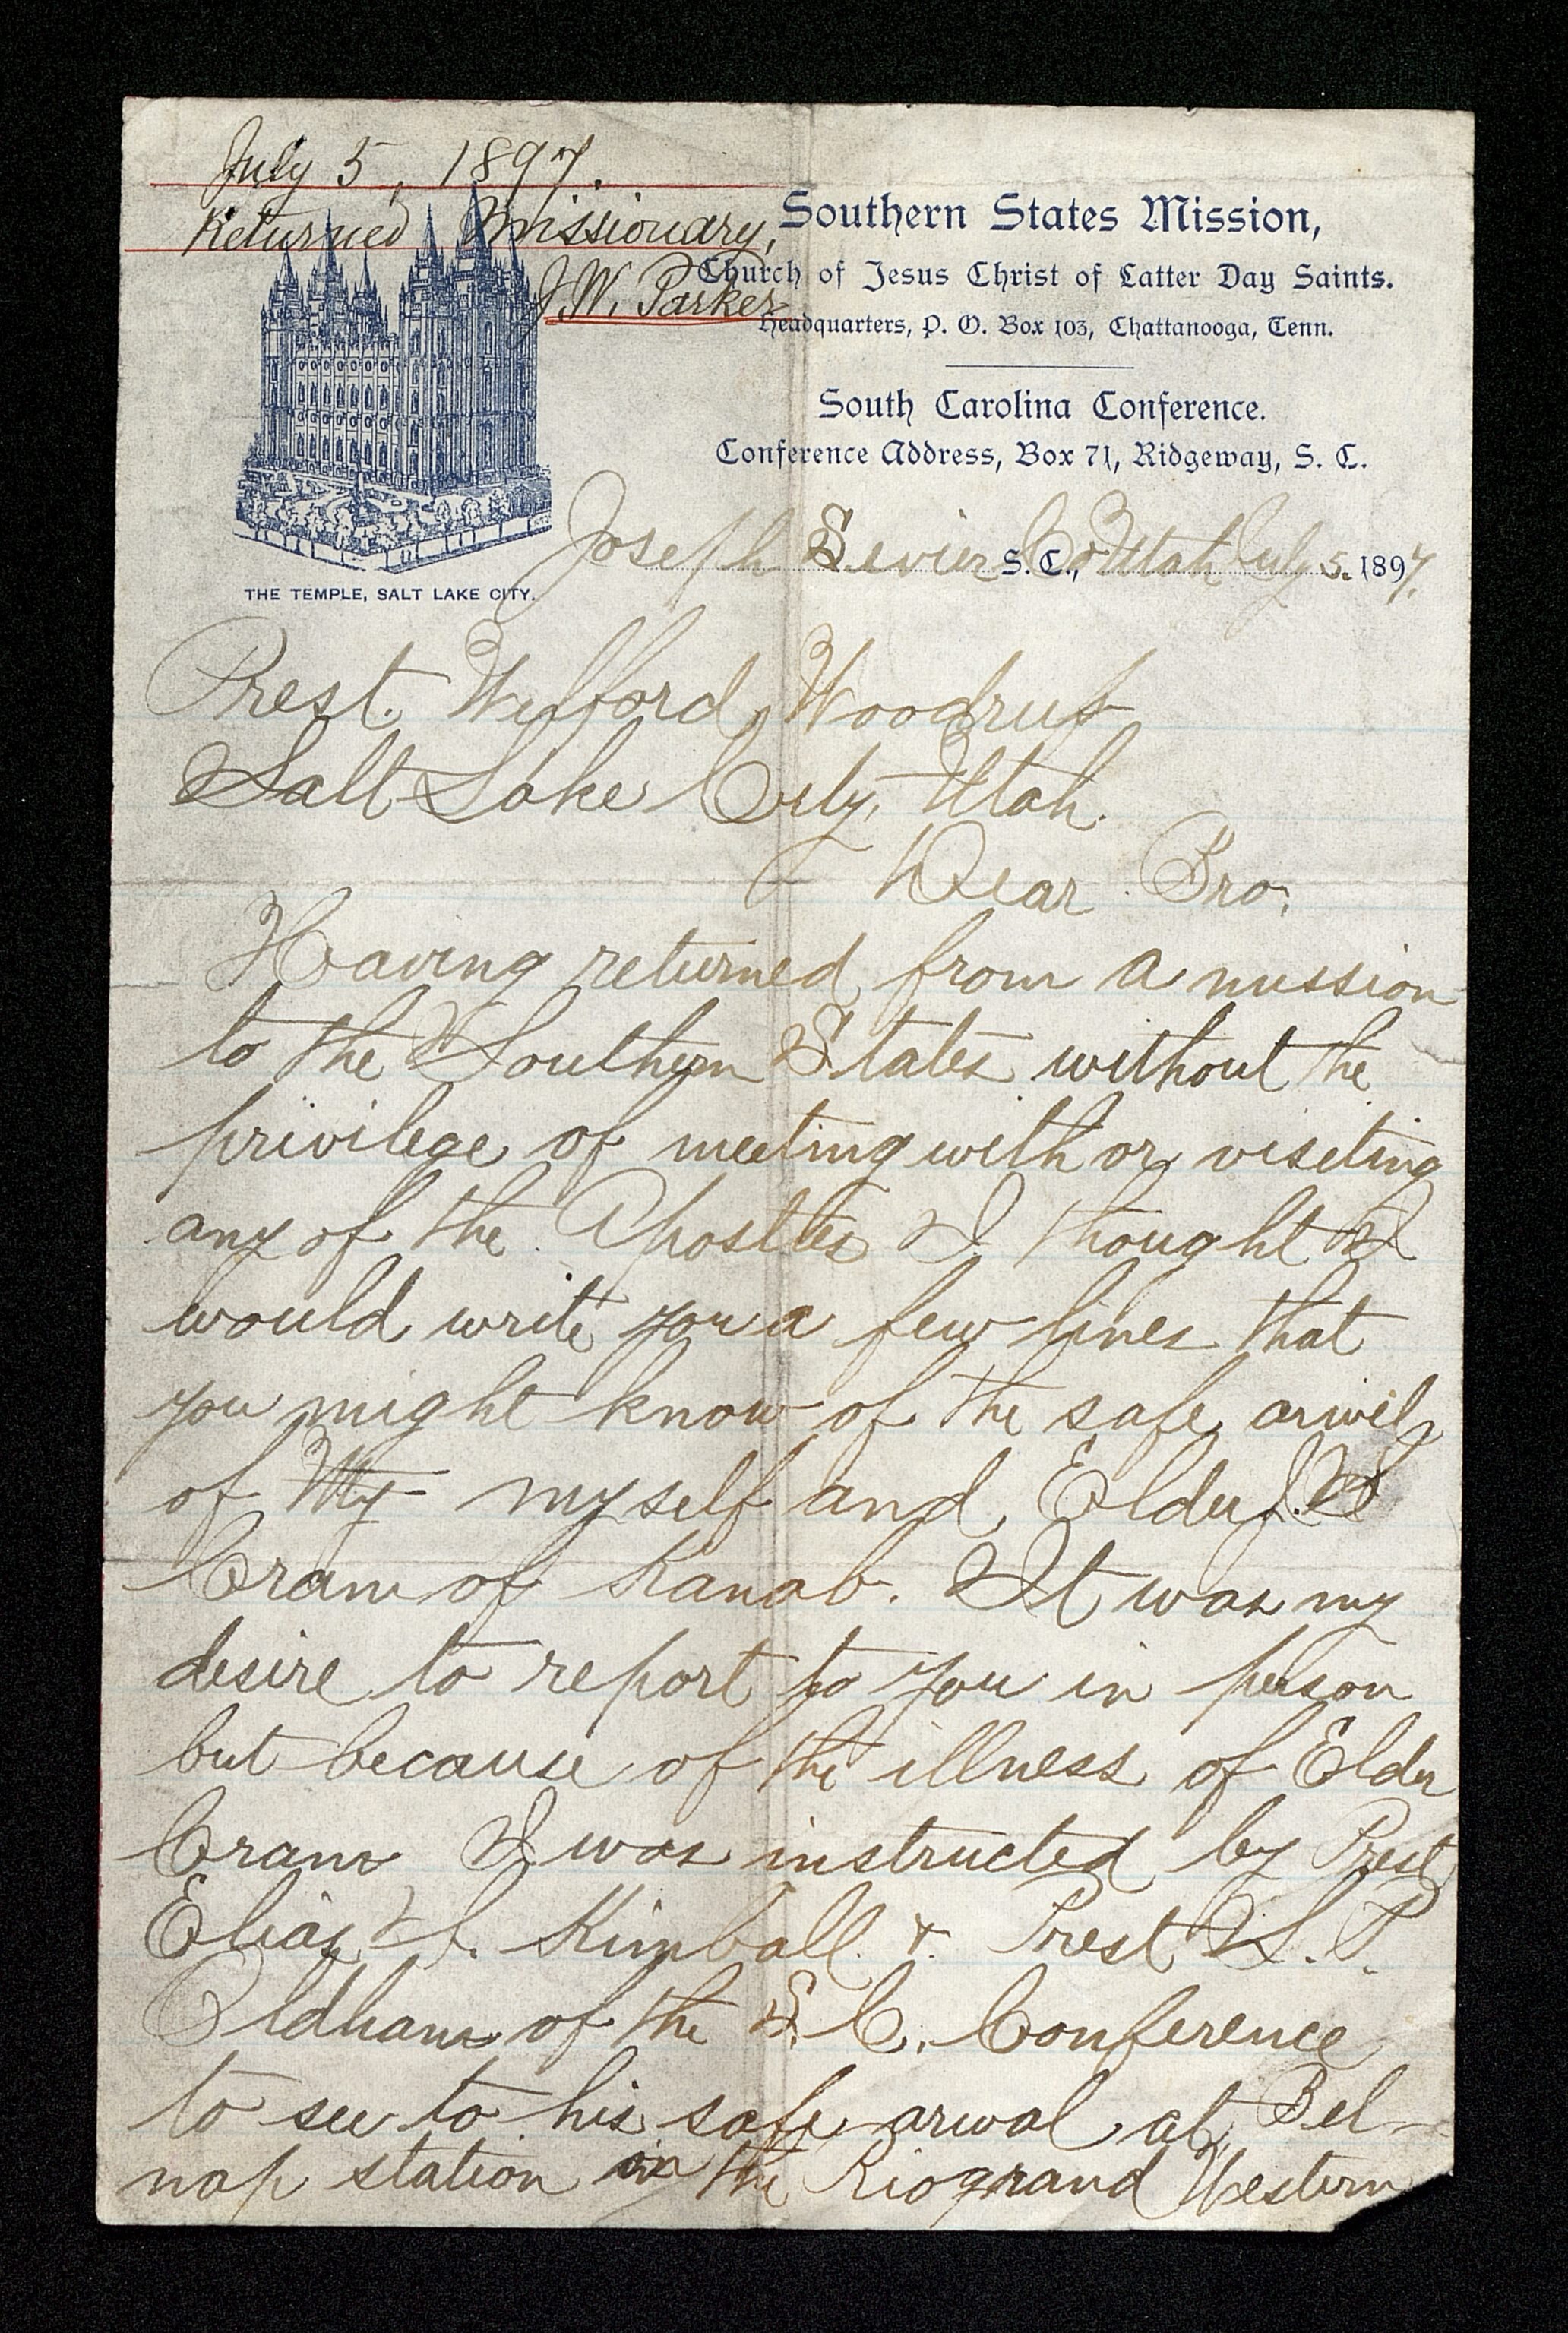 July 5, 1897.
Returned Missionary,
J. W. Parker
Southern States Mission,
Church of Jesus Christ of Latter Day Saints.
Headquarters, P. O. Box 103, Chattanooga, Tenn.
South Carolina Conference.
Conference Address, Box 71, Ridgeway, S. C.
THE TEMPLE, SALT LAKE CITY.
Joseph Sevier S. C., Co Utah July 5. 1897.
Prest. Wilford Woodruf
Salt Lake City, Utah.
Dear Bro.
Having returned from a mission
to the Southern States without the
privilege of meeting with or viseting
any of the Apostles I thought I
would write you a few lines that
you might know of the safe arivel
of My myself and Elder J.
Cram of Kanab. It was my
desire to report to you in person
but because of the illness of Elder
Cram I was instructed by Prest
Elias S. Kimball & Prest L. P.
Oldham of the S. C. Conference
to see to his safe arival at Bel-
nap station on the Riogrand Western